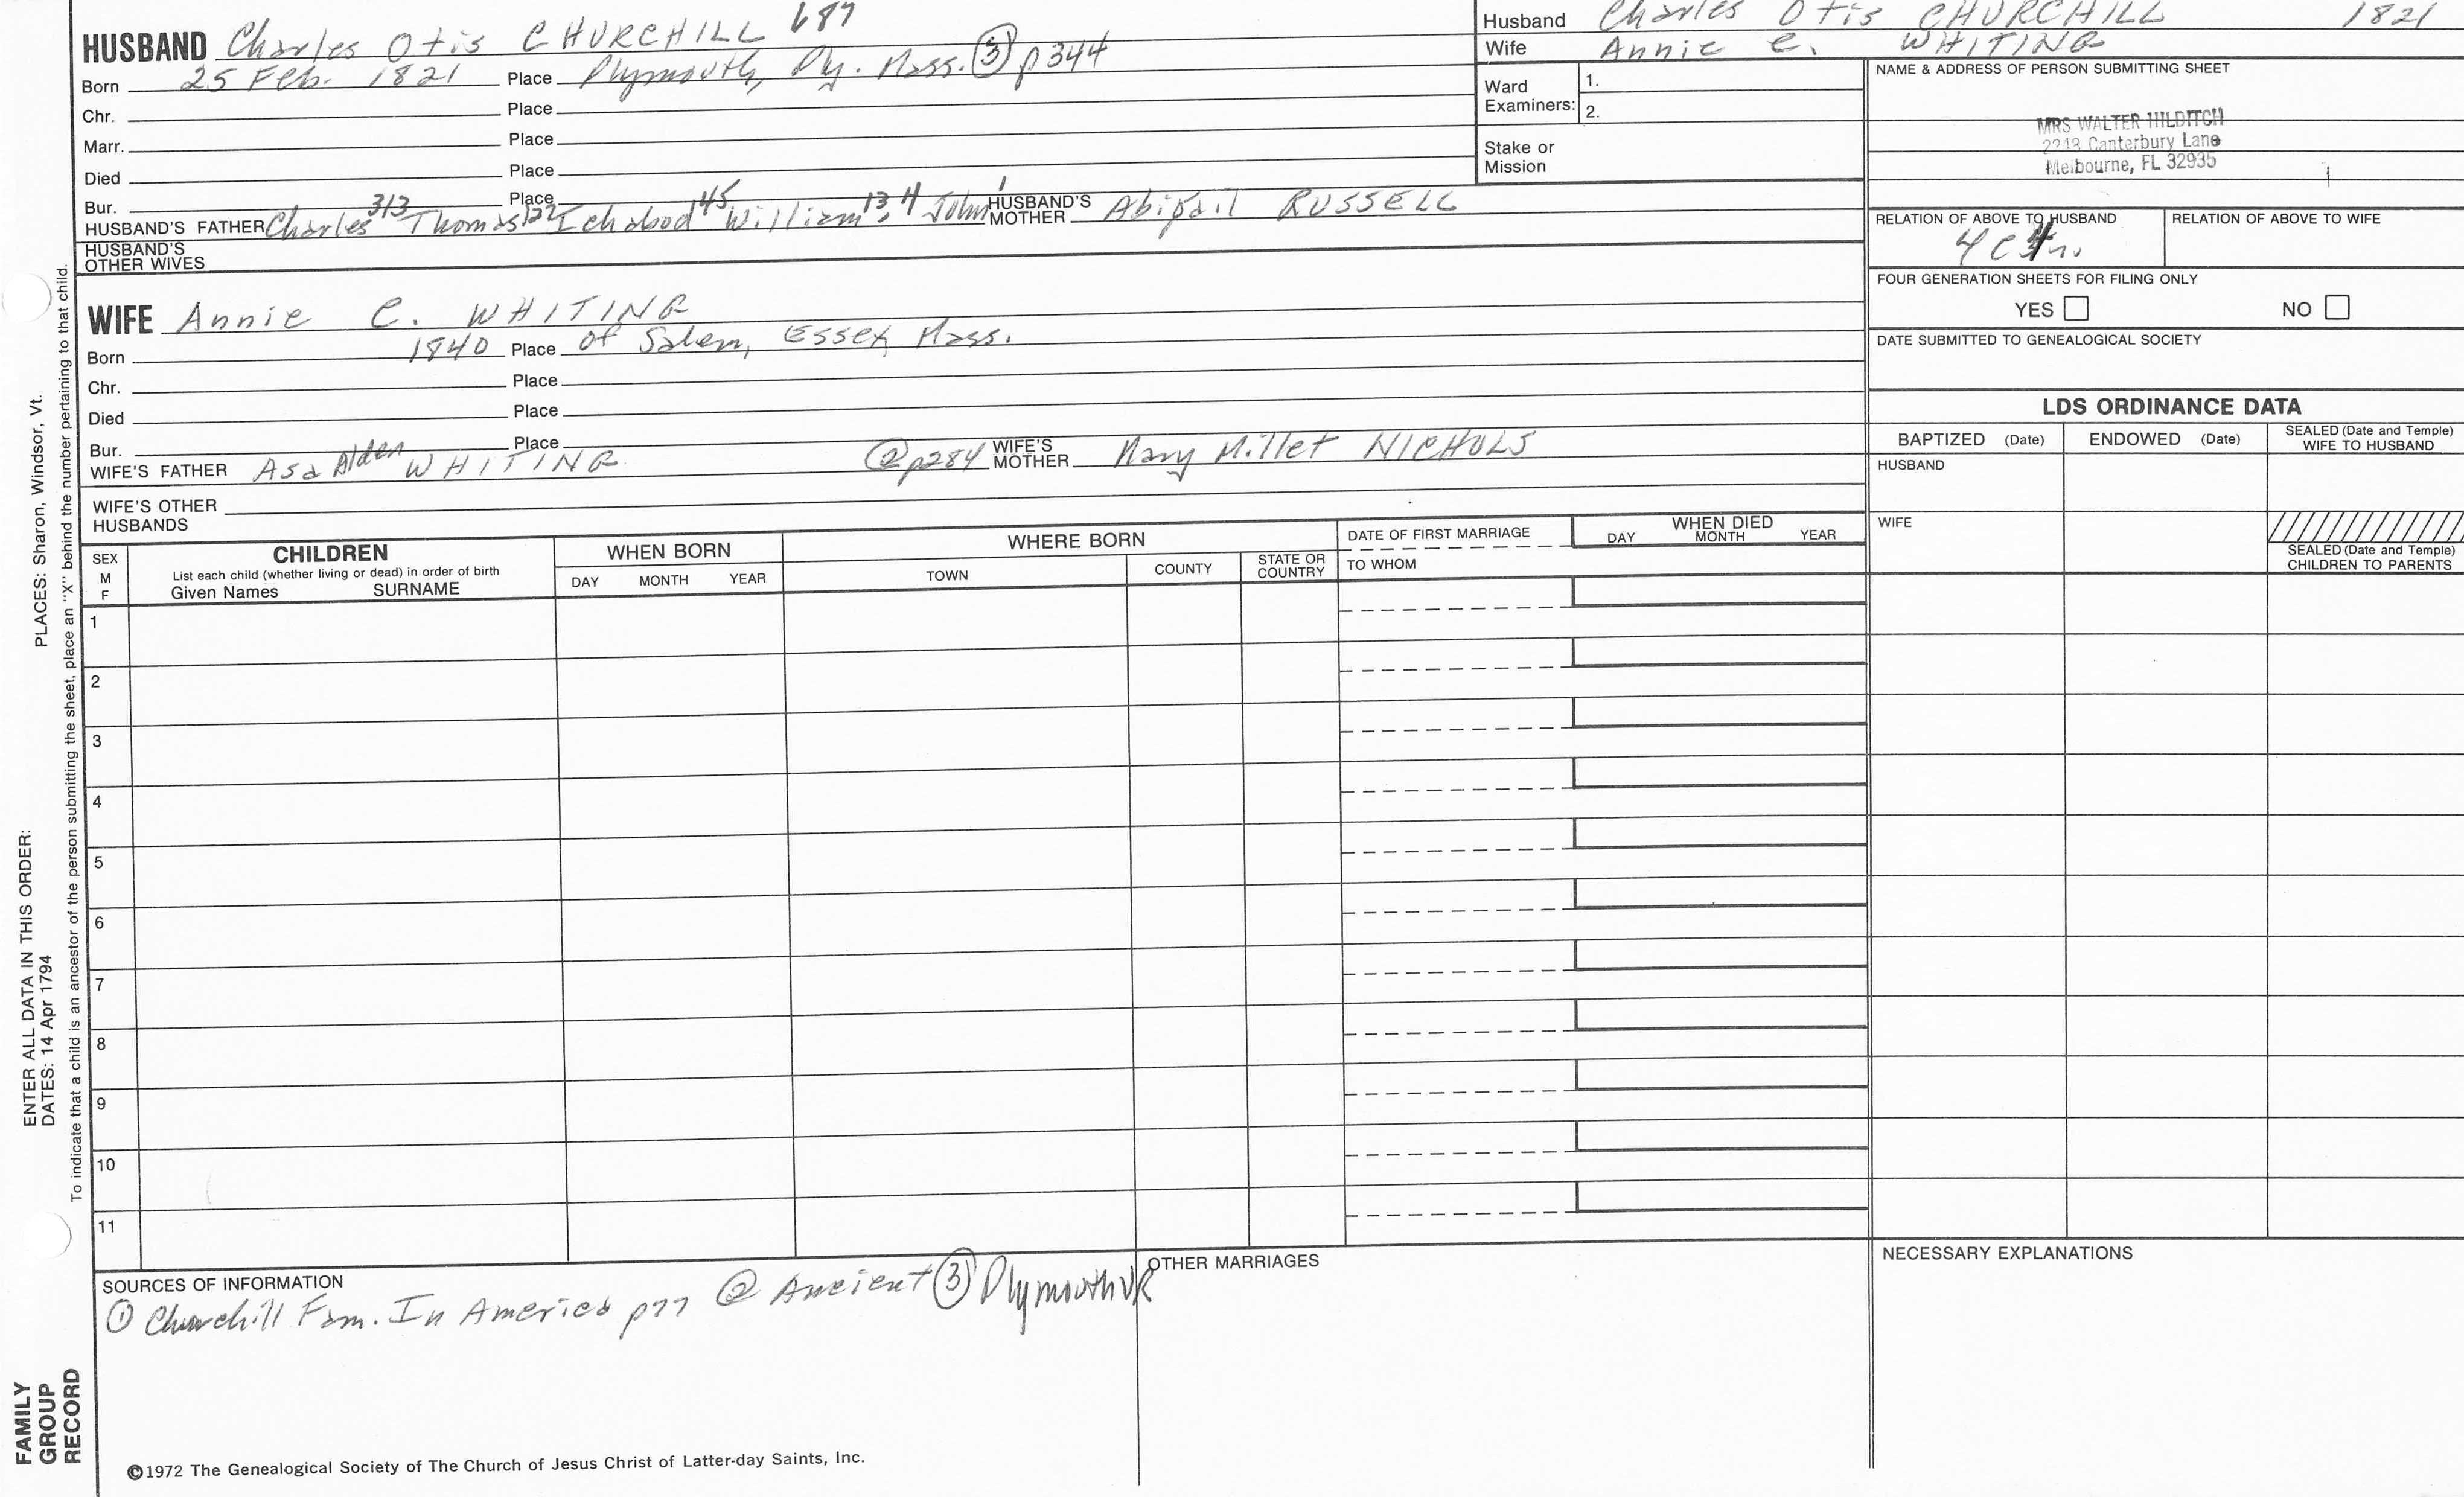 HUSBAND Charles Otis CHURCHILL 687
Born 25 Feb. 1821 Place Plymouth, Ply. Mass. (3) p344
Chr. Place
Marr. Place
Died Place
Bur. Place
HUSBAND'S FATHER Charles 313 Thomas 122 Ichabod 45 William 13, 4 John 1 HUSBAND'S MOTHER Abigail RUSSELL
HUSBAND'S OTHER WIVES
WIFE Annie C. WHITING
Born 1840 Place of Salem, Essex, Mass.
Chr. Place
Died Place
Bur. Place
WIFE'S FATHER Asa Alden WHITING (2) p284 WIFE'S MOTHER Mary Millet NICHOLS
WIFE'S OTHER HUSBANDS
Husband Charles Otis CHURCHILL 1821
Wife Annie C. WHITING
Ward Examiners: 1.
2.
Stake or Mission
NAME & ADDRESS OF PERSON SUBMITTING SHEET
MRS WALTER HILDITCH
2248 Canterbury Lane
Melbourne, FL 32935
RELATION OF ABOVE TO HUSBAND
RELATION OF ABOVE TO WIFE
FOUR GENERATION SHEETS FOR FILING ONLY
YES NO
DATE SUBMITTED TO GENEALOGICAL SOCIETY
LDS ORDINANCE DATA
BAPTIZED (Date) ENDOWED (Date) SEALED (Date and Temple) WIFE TO HUSBAND
HUSBAND
WIFE
SEALED (Date and Temple) CHILDREN TO PARENTS
SEX M F
CHILDREN
List each child (whether living or dead) in order of birth
Given Names SURNAME
WHEN BORN
DAY MONTH YEAR
WHERE BORN
TOWN COUNTY STATE OR COUNTRY
DATE OF FIRST MARRIAGE
TO WHOM
WHEN DIED
DAY MONTH YEAR
1
2
3
4
5
6
7
8
9
10
11
SOURCES OF INFORMATION
(1) Churchill Fam. In America p77 (2) Ancient (3) Plymouth VR
OTHER MARRIAGES
NECESSARY EXPLANATIONS
©1972 The Genealogical Society of The Church of Jesus Christ of Latter-day Saints, Inc.
FAMILY GROUP RECORD
ENTER ALL DATA IN THIS ORDER:
DATES: 14 Apr 1794
PLACES: Sharon, Windsor, Vt.
To indicate that a child is an ancestor of the person submitting the sheet, place an "X" behind the number pertaining to that child.